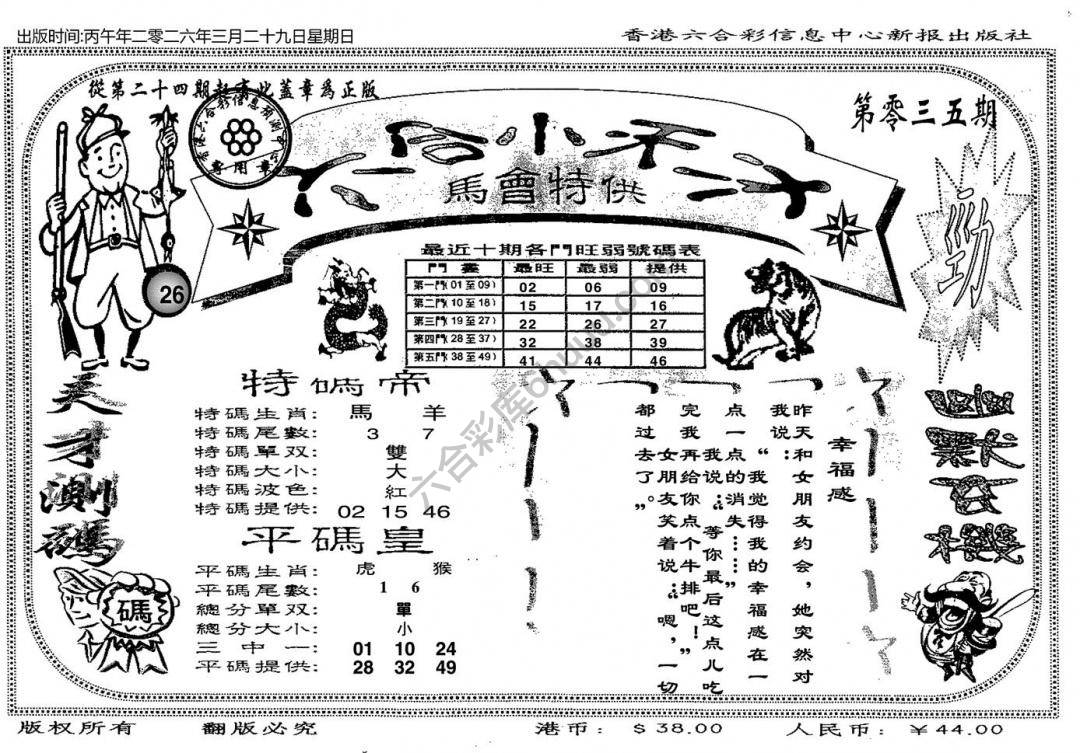 出版时间:丙午年二零二六年三月二十九日星期日
香港六合彩信息中心新报出版社
從第二十四期起有此蓋章為正版
第零三五期
專用章
馬會特供
勁
26
最近十期各門旺弱號碼表
門畫 最旺 最弱 提供
第一門(01至09) 02 06 09
第二門(10至18) 15 17 16
第三門(19至27) 22 26 27
第四門(28至37) 32 38 39
第五門(38至49) 41 44 46
天才測碼
特碼帝
特碼生肖: 馬 羊
特碼尾數: 3 7
特碼單双: 雙
特碼大小: 大
特碼波色: 紅
特碼提供: 02 15 46
平碼皇
平碼生肖: 虎 猴
平碼尾數: 1 6
總分單双: 單
總分大小: 小
三中一: 01 10 24
平碼提供: 28 32 49
碼
幸福感
昨天和女朋友约会,她突然对
我说:“我觉得我的幸福感在一
点一点的消失……”
我说:“等你最后这点儿吃
完我再给你点个牛排吧!”
女朋友笑着说:“嗯,一切
都过去了。”
六合彩库6huuu.com
版权所有
翻版必究
港币: $38.00
人民币: ¥44.00